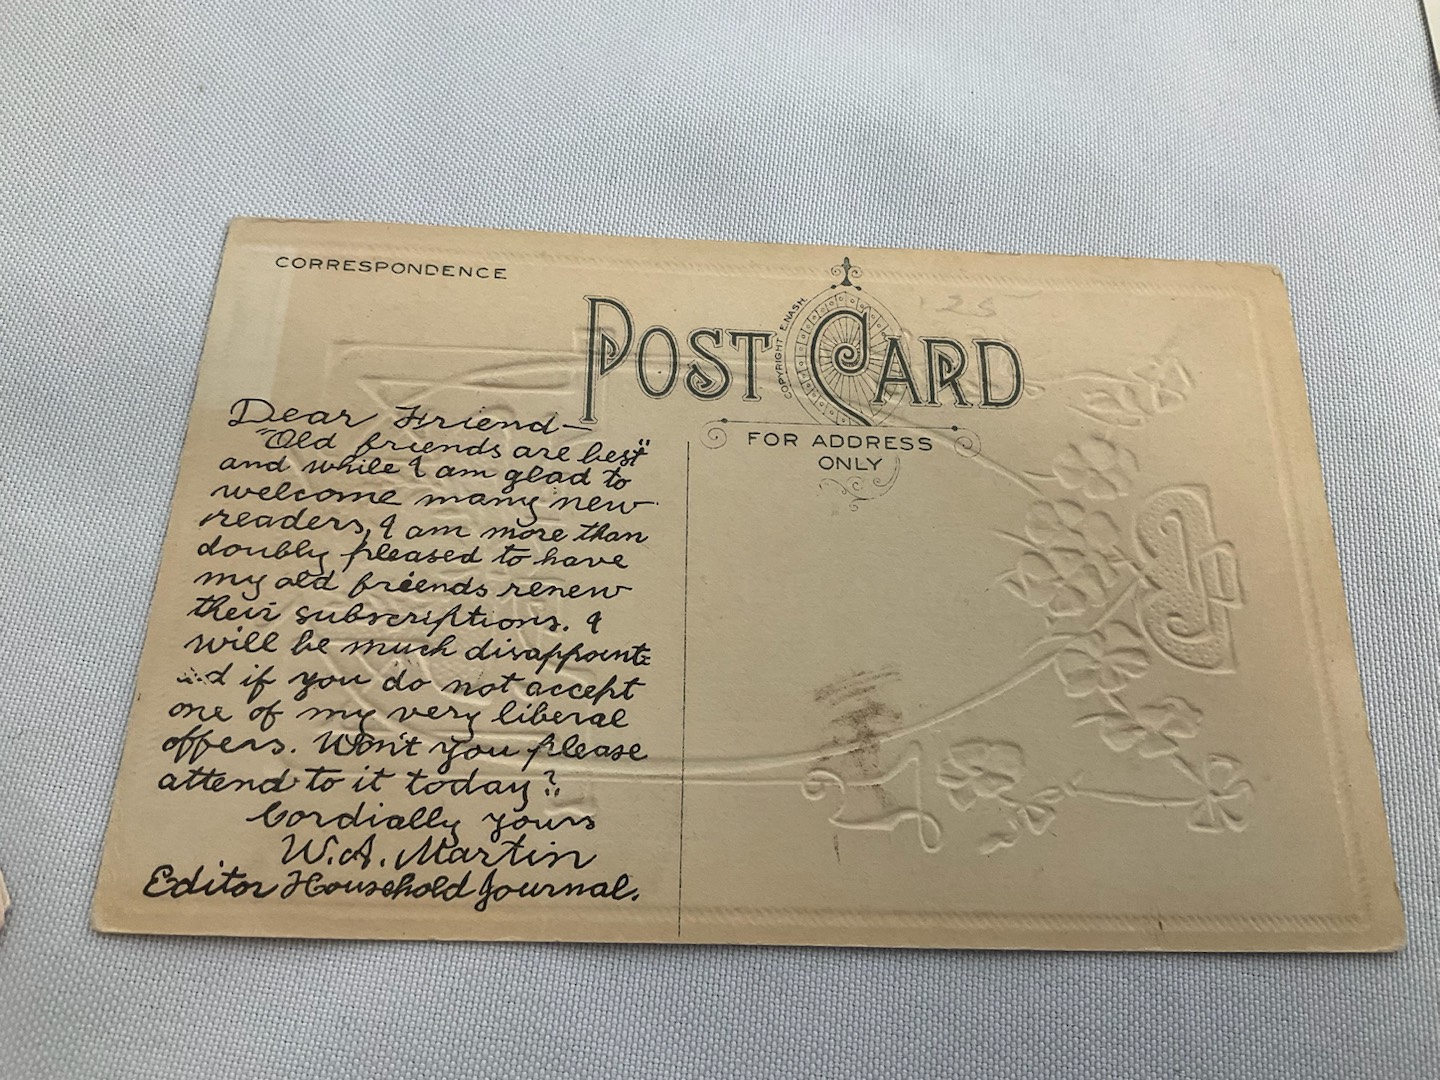 CORRESPONDENCE
POST CARD
COPYRIGHT E.NASH.
FOR ADDRESS
ONLY
125
Dear Friend—
"Old friends are best"
and while I am glad to
welcome many new
readers, I am more than
doubly pleased to have
my old friends renew
their subscriptions. I
will be much disappoint=
ed if you do not accept
one of my very liberal
offers. Won't you please
attend to it today?
Cordially yours
W.A. Martin
Editor Household Journal.